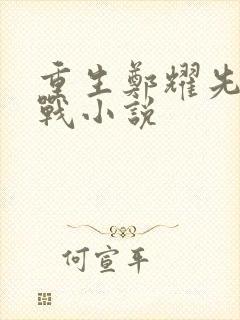 重生鄭耀先
戰小説
何宣平